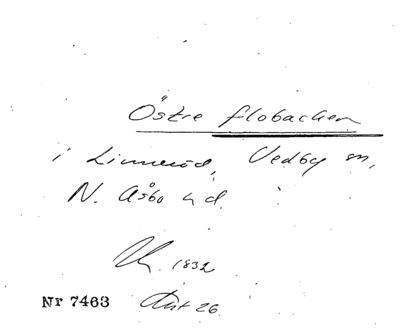 Östre flobacken
i Linneröd, Vedby sn,
N. Åsbo hd.
1832
Nr 7463 Akt 26